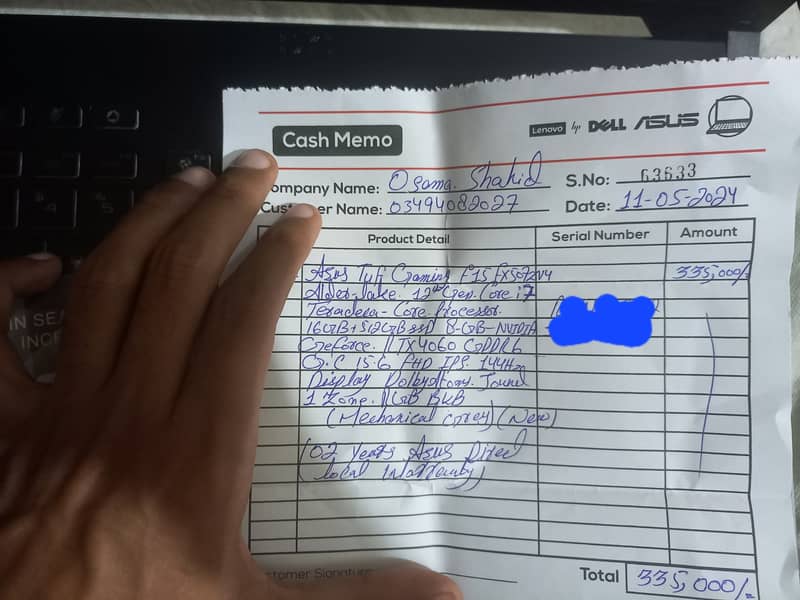 Lenovo hp DELL ASUS
Cash Memo
ompany Name: Osama. Shahid
S.No: 63633
Cus er Name: 03494082027
Date: 11-05-2024
Product Detail Serial Number Amount
Asus Tuf Gaming F15 FX507ZV4 335,000/-
Alder-lake. 12th Gen. Core i7
Core Processor.
16GB+512GB SSD 8-GB-NVIDIA
Geforce. RTX4060 GDDR6
G.C 15.6 FHD IPS. 144Hz
Display Dolby Atoms. Sound
1 Zone. RGB BKB
(Mechanical Grey) (New)
(02 Years Asus Direct
local Warranty)
tomer Signature
Total 335,000/-
IN SEA
INCR